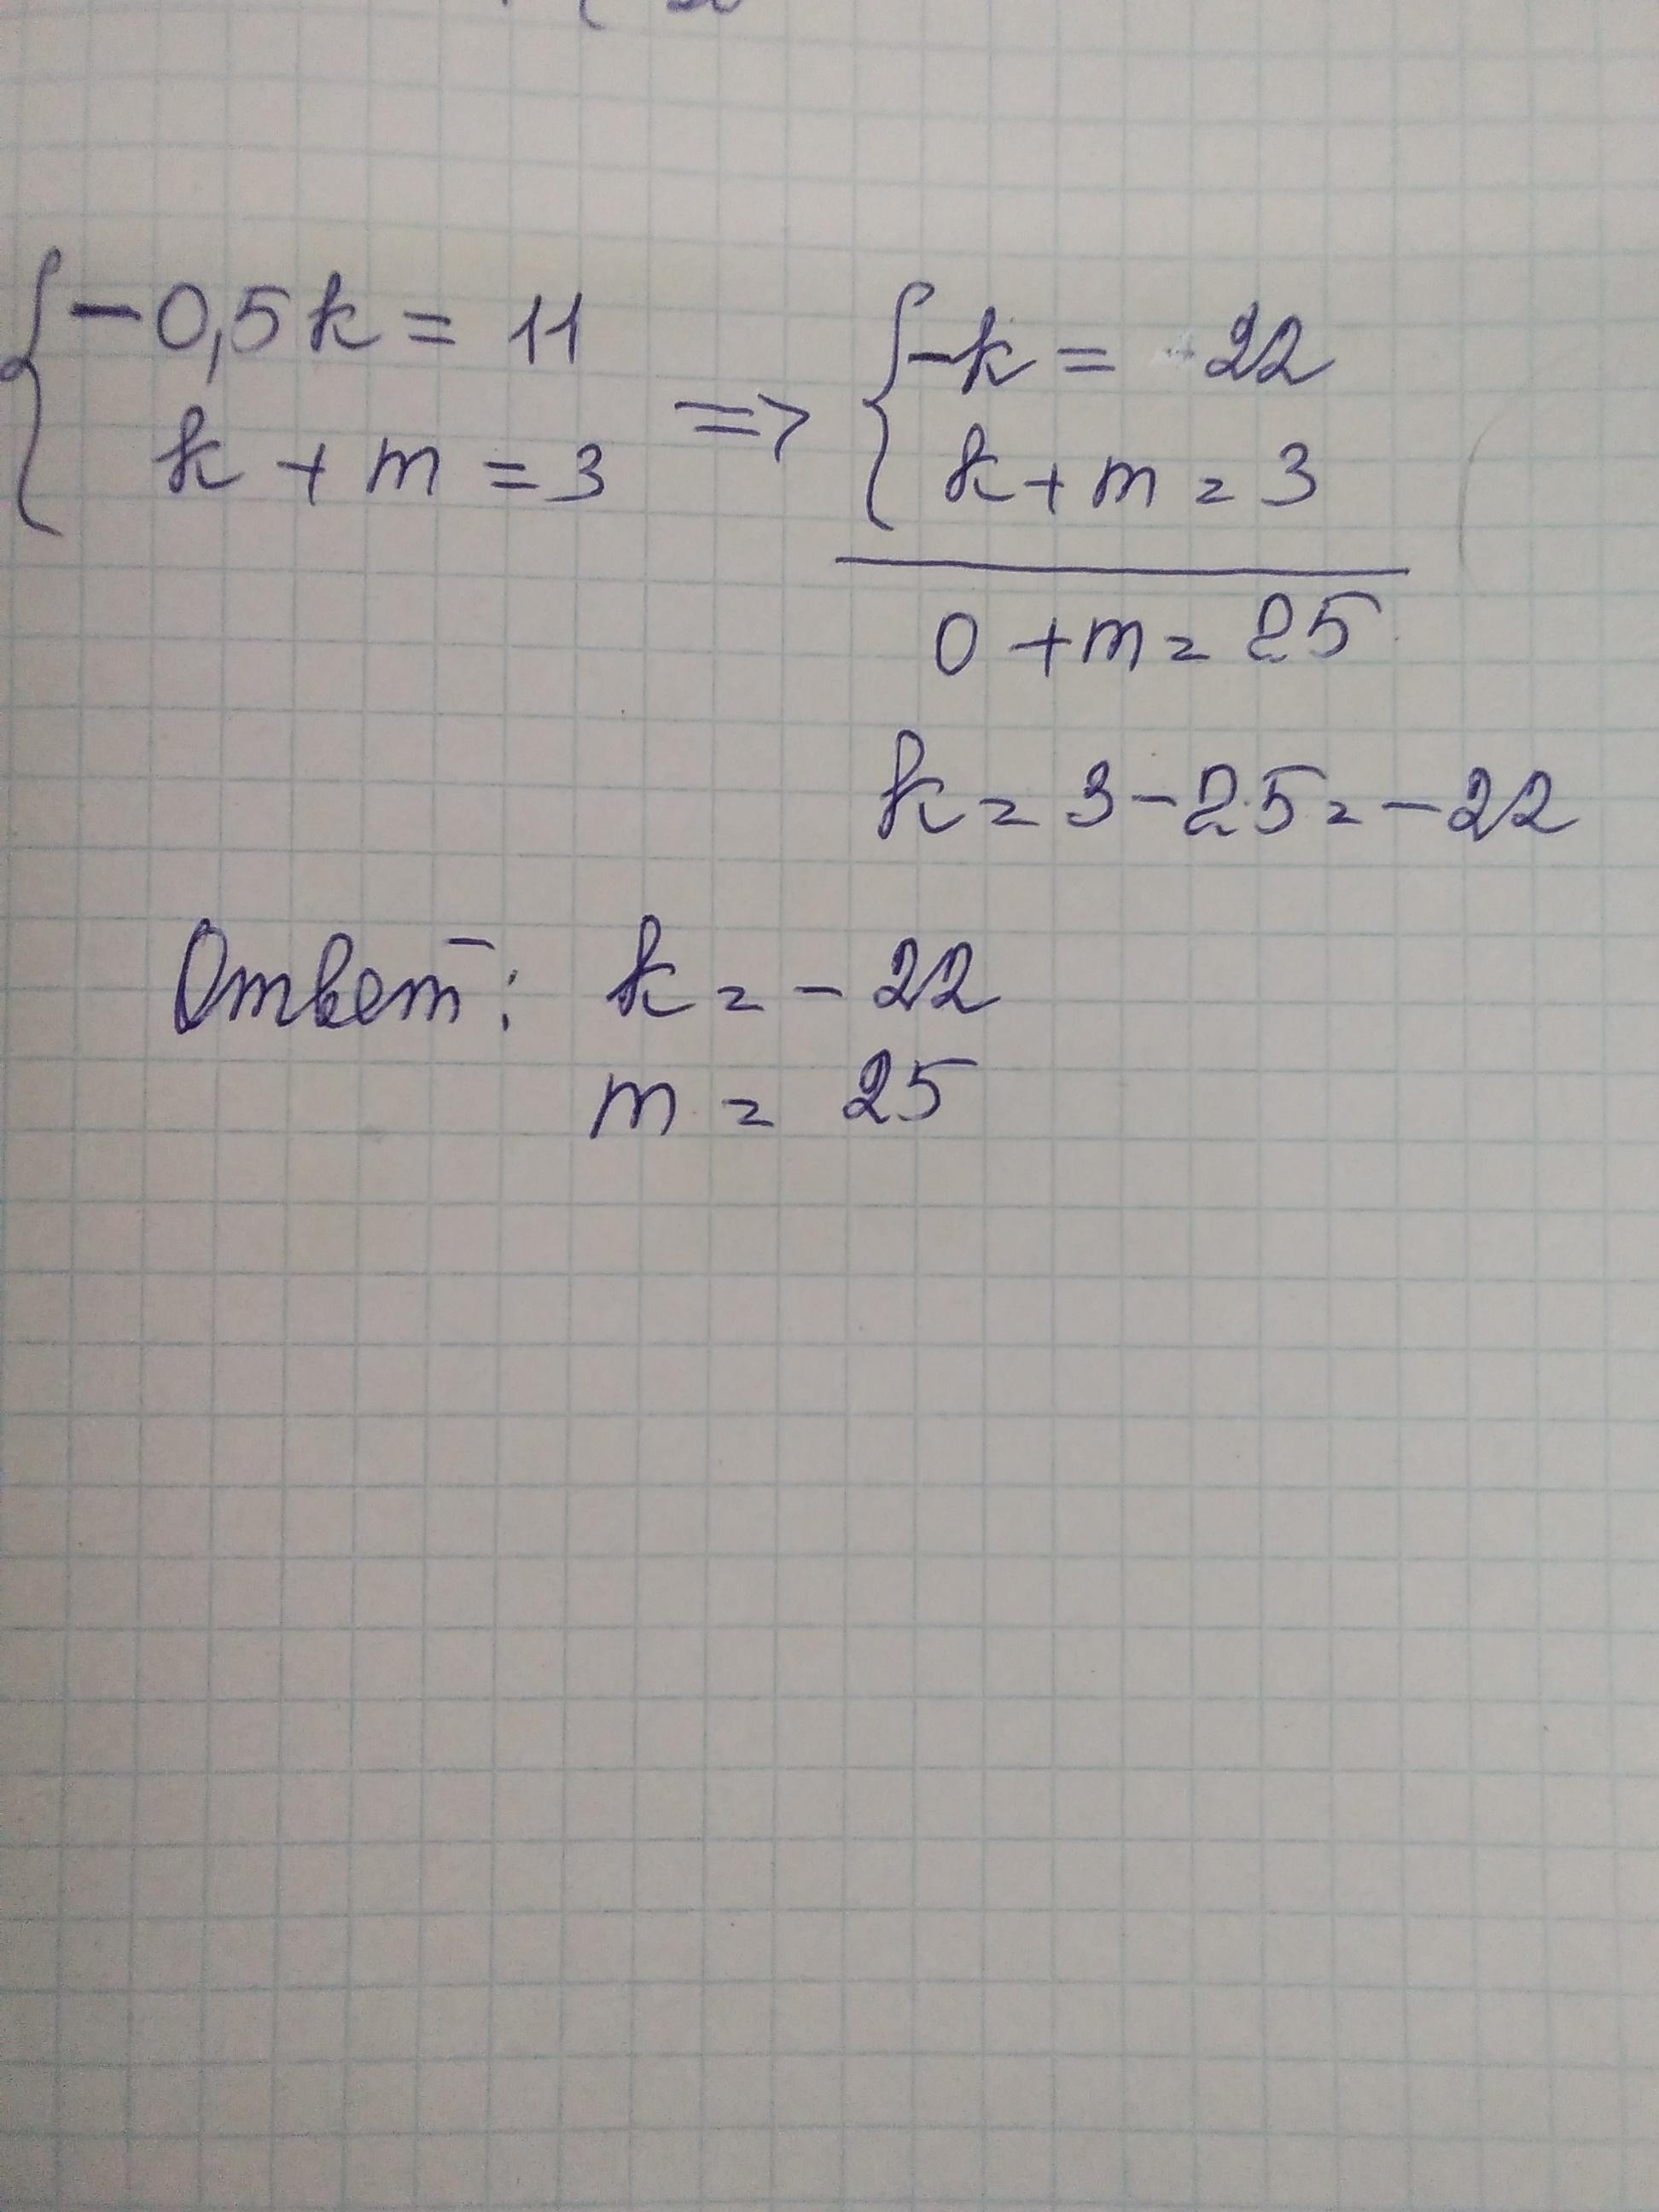 -0,5k = 11
k + m = 3
=>
-k = 22
k + m = 3
0 + m = 25
k = 3 - 25 = -22
Ответ: k = -22
m = 25